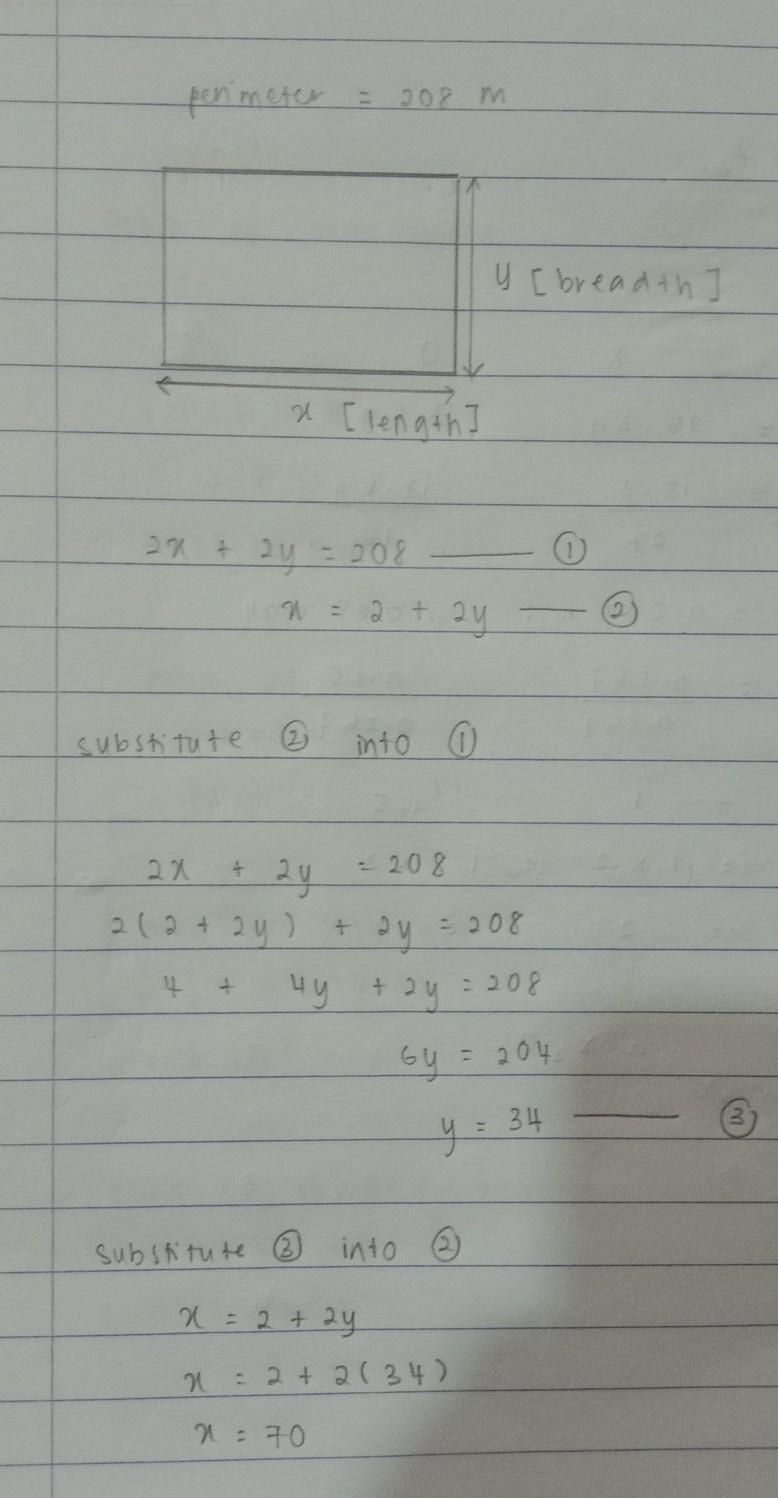 perimeter = 208 m
y [breadth]
x [length]
2x + 2y = 208 —— ①
x = 2 + 2y —— ②
substitute ② into ①
2x + 2y = 208
2(2 + 2y) + 2y = 208
4 + 4y + 2y = 208
6y = 204
y = 34 —— ③
substitute ③ into ②
x = 2 + 2y
x = 2 + 2(34)
x = 70